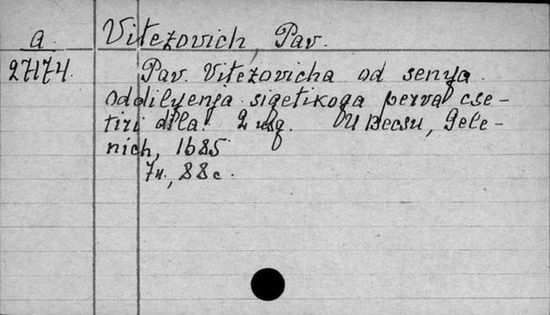 a Vitezovich, Pav.
27174. Pav. Vitezovicha od senya
oddilyenja sigetikoga perva cse-
tiri dila. 2 izg. U Becsu, Gele-
nich, 1685
7n., 88 c.